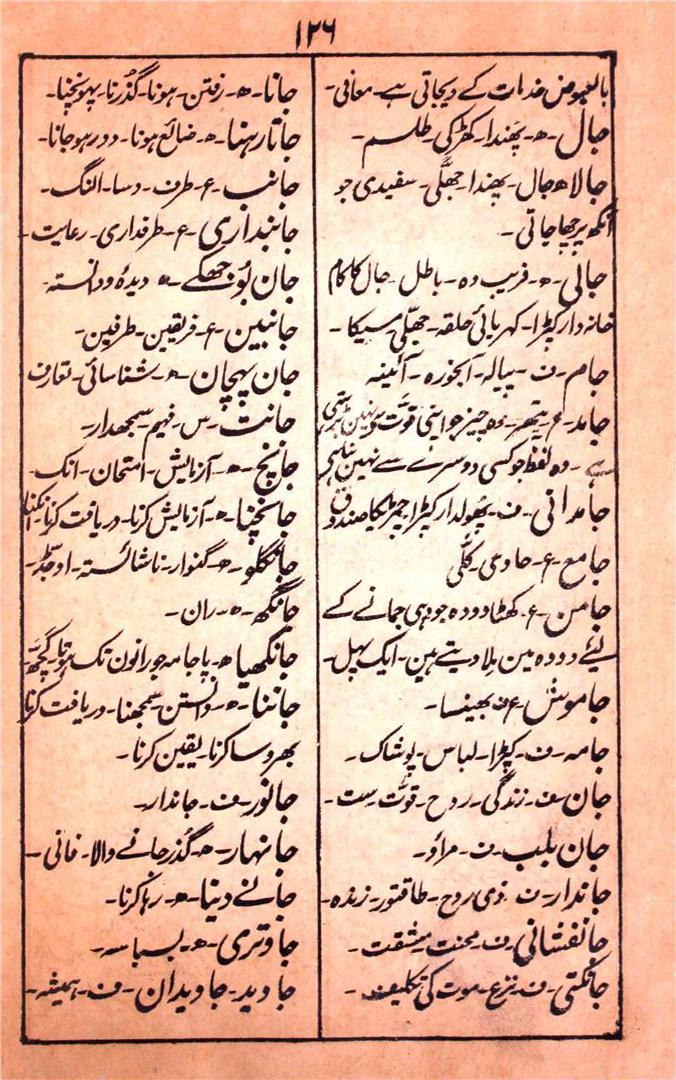 ۱۲۶
بالعوض خدمات کے دیجاتی ہے۔ معافی۔
جال۔ ھ۔ پھندا۔ کھڑکی۔ طلسم۔
جالا ھ جال۔ پھندا۔ جھلّی۔ سفیدی جو
آنکھ پر چھا جاتی۔
جالی۔ ھ۔ فریب دہ۔ باطل۔ جال کا کام
خانہ دار کپڑا۔ کہربائی حلقہ۔ جھلّی۔
جام۔ ف۔ پیالہ۔ آبخورہ۔ آئینہ
جامد۔ ع۔ پتھر۔ وہ چیز جو اپنی قوت نہیں
ہے۔ وہ لفظ جو کسی دوسرے سے نہیں
جامدانی۔ ف۔ پھولدار کپڑا۔ چمڑیکا صندوق
جامع۔ ع۔ حاوی۔ کلّی
جامن۔ ع۔ کھٹا دودہ جو دہی جمانے کے
لیئے دودہ مین ملا دیتے ہین۔ ایک پہل۔
جاموش ع ف بھینسا۔
جامہ۔ ف۔ کپڑا۔ لباس۔ پوشاک۔
جان۔ ف۔ زندگی۔ روح۔ قوّت۔ ست۔
جان بلب۔ ف۔ مراؤ۔
جاندار۔ ف ذی روح۔ طاقتور۔ زندہ۔
جانفشانی۔ ف۔ محنت۔ مشقت۔
جانکنی۔ ف۔ نزع۔ موت کی تکلیف۔
جانا۔ ھ۔ رفتن۔ ہونا۔ گذرنا۔ پہونچنا۔
جاتا رہنا۔ ھ۔ ضائع ہونا۔ دور ہو جانا۔
جانب۔ ع۔ طرف۔ دسا۔ النگ۔
جانبداری۔ ع۔ طرفداری۔ رعایت۔
جان بُوجھکے۔ ھ۔ دیدہ و دانستہ۔
جانبین۔ ع۔ فریقین۔ طرفین۔
جان پہچان۔ ھ۔ شناسائی۔ تعارف
جانت۔ س۔ فہیم۔ سمجھدار۔
جانچ۔ ھ۔ آزمایش۔ امتحان۔ انک۔
جانچنا۔ ھ۔ آزمایش کرنا۔ دریافت کرنا۔
جانگلو۔ ھ۔ گنوار۔ ناشائستہ۔ اوجڈ۔
جانگھ۔ ھ۔ ران۔
جانگھیا۔ ھ۔ پاجامہ جو رانون تک ہوتا۔
جاننا۔ ھ۔ دانستن۔ سمجھنا۔ دریافت کرنا
بھروسا کرنا۔ یقین کرنا۔
جانور۔ ف۔ جاندار۔
جانہار۔ ھ۔ گذر جانے والا۔ فانی۔
جانے دینا۔ ھ۔ رہا کرنا۔
جاوتری۔ ھ۔ بسباسہ۔
جاوید۔ جاویدان۔ ف۔ ہمیشہ۔